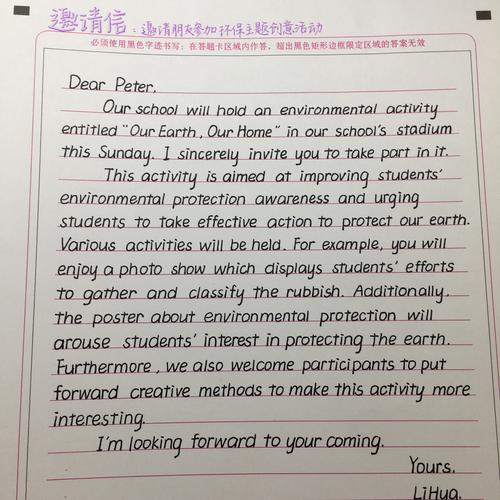 邀请信：邀请朋友参加环保主题创意活动
必须使用黑色字迹书写；在答题卡区域内作答，超出黑色矩形边框限定区域的答案无效
Dear Peter,
Our school will hold an environmental activity
entitled "Our Earth, Our Home" in our school's stadium
this Sunday. I sincerely invite you to take part in it.
This activity is aimed at improving students'
environmental protection awareness and urging
students to take effective action to protect our earth.
Various activities will be held. For example, you will
enjoy a photo show which displays students' efforts
to gather and classify the rubbish. Additionally,
the poster about environmental protection will
arouse students' interest in protecting the earth.
Furthermore, we also welcome participants to put
forward creative methods to make this activity more
interesting.
I'm looking forward to your coming.
Yours,
LiHua.